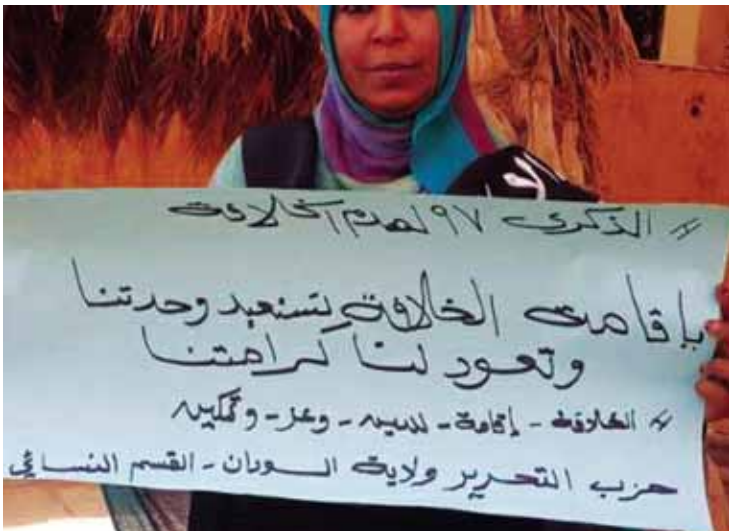 # الذكرى ٩٧ لهدم الخلافة
بإقامة الخلافة نستعيد وحدتنا
وتعود لنا كرامتنا
# الخلافة - إقامة - للدين - وعز - وتمكين
حزب التحرير ولاية السودان - القسم النسائي